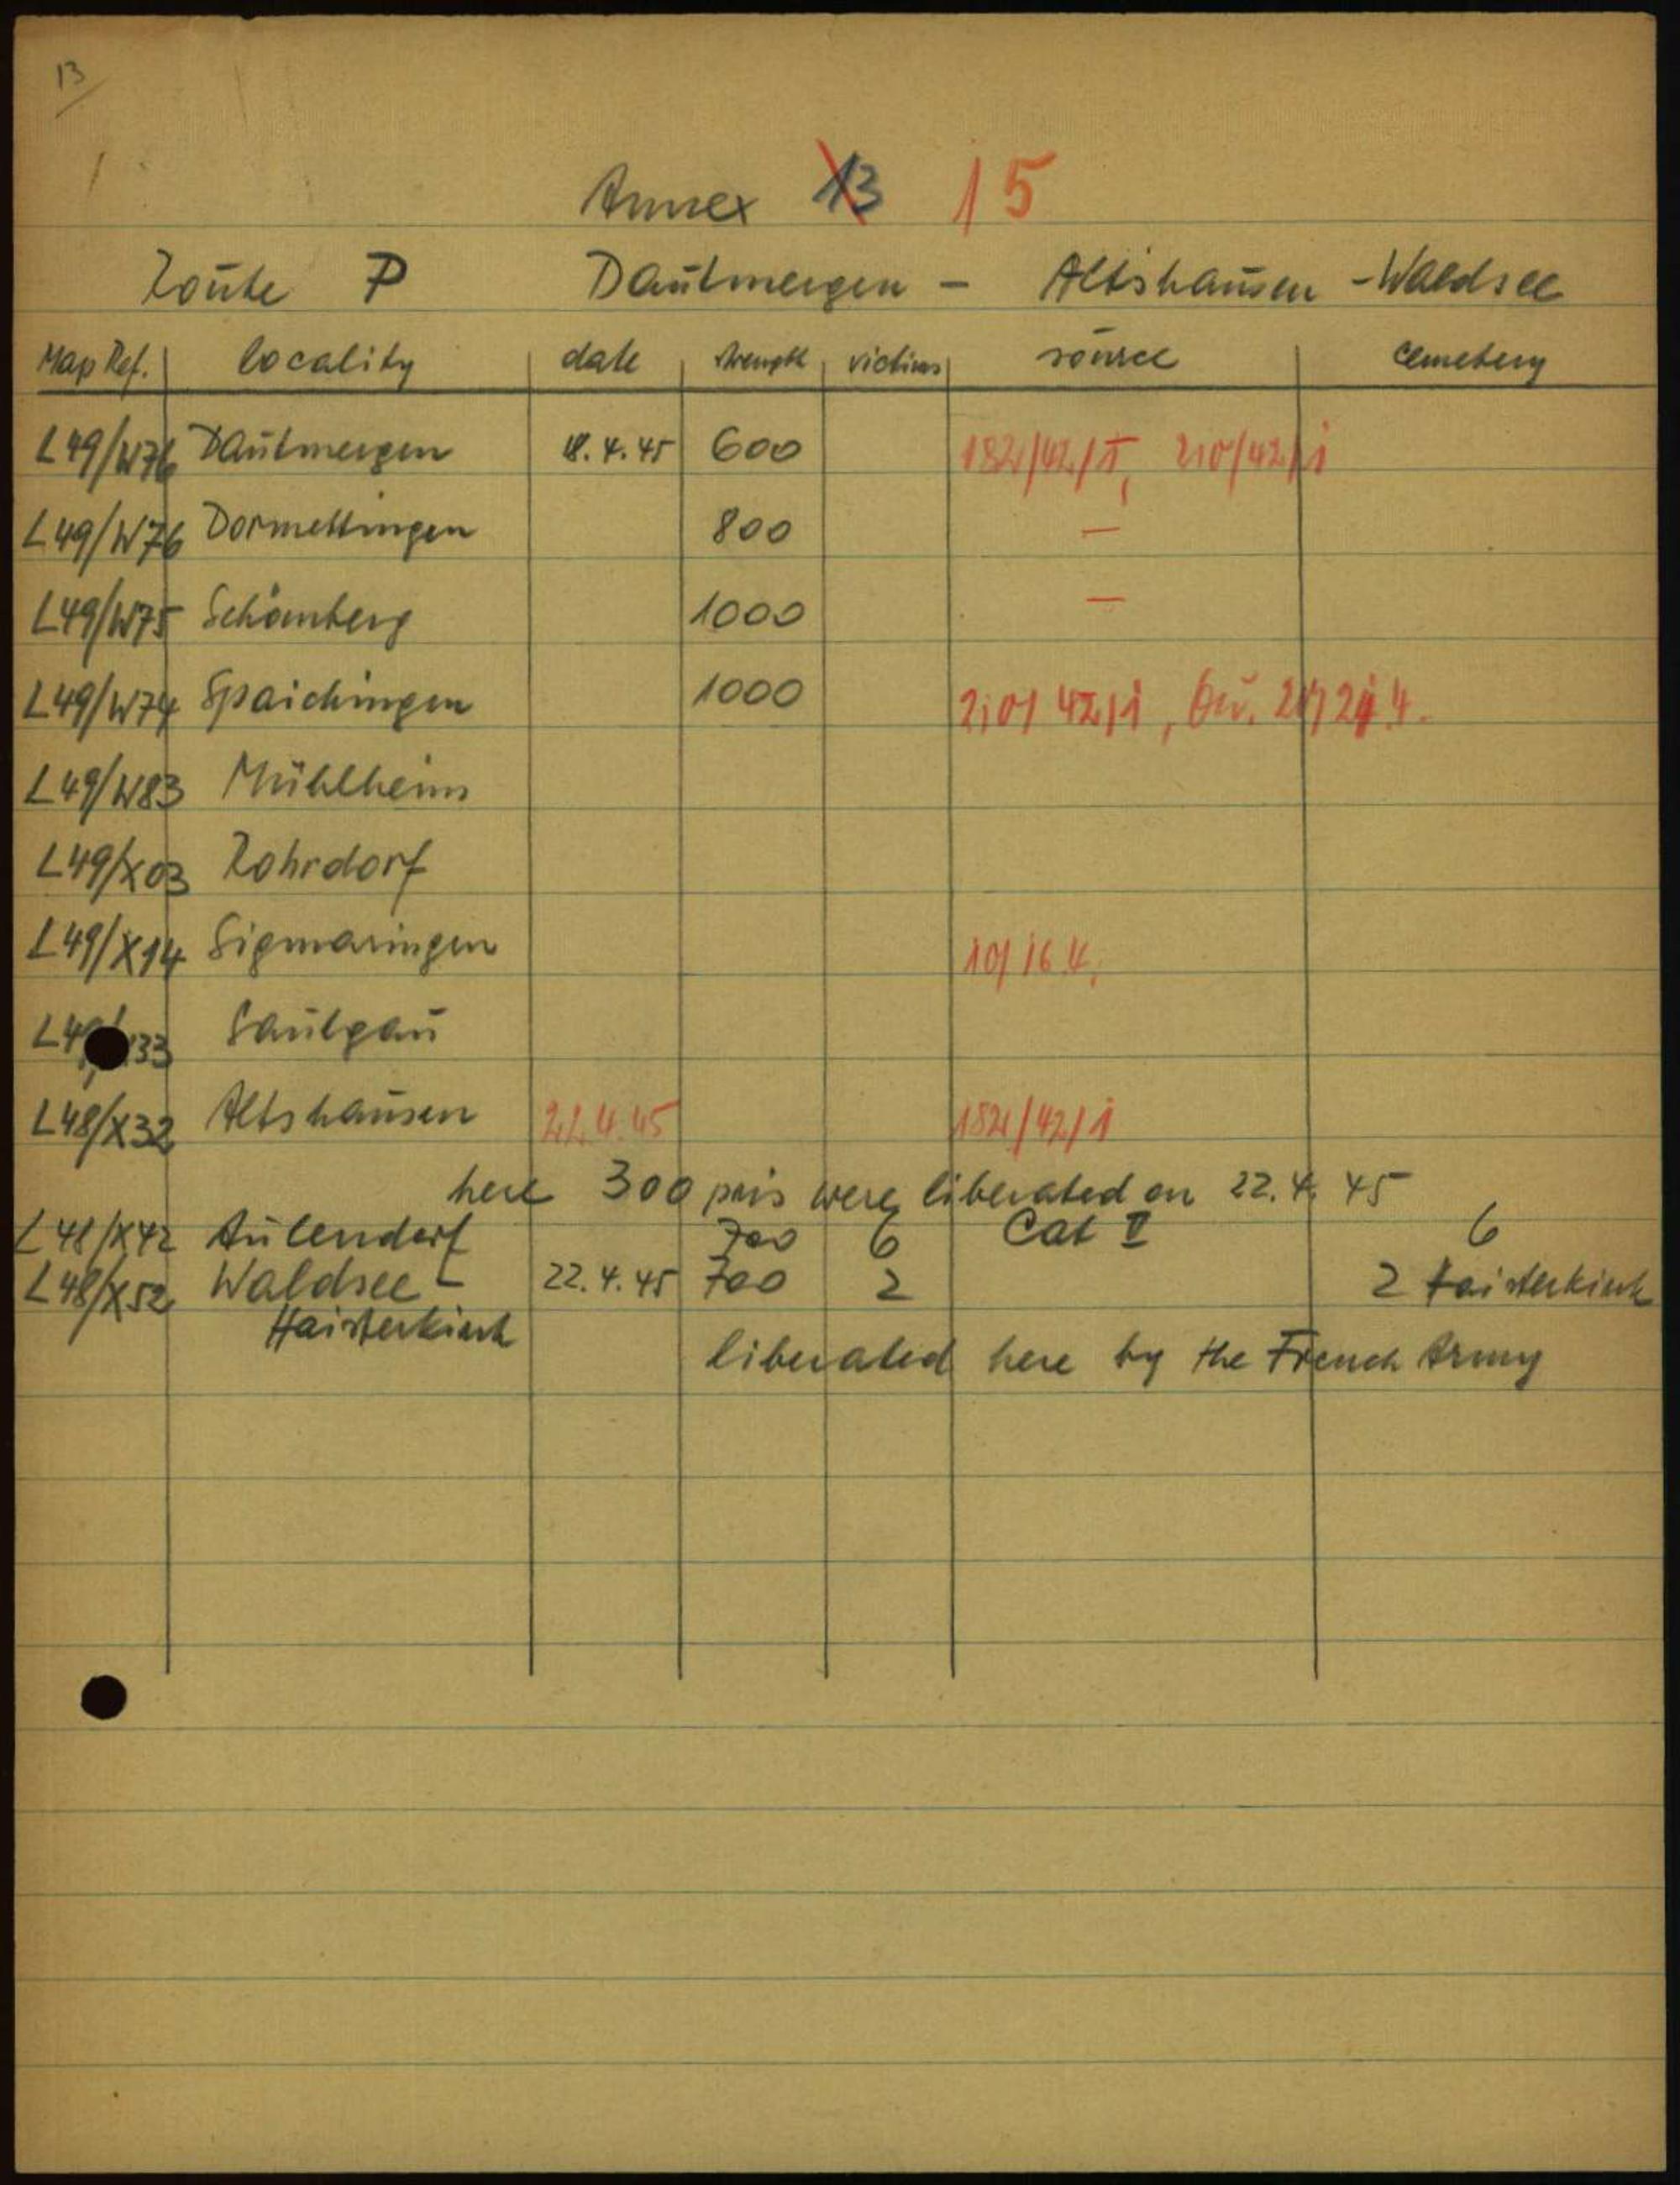 13
Annex 13 15
Route P Dautmergen - Altshausen - Waldsee
Map Ref. locality date strength victims source cemetery
L49/W76 Dautmergen 18.4.45 600 182/42/1, 210/42/1
L49/W76 Dormettingen 800 —
L49/W75 Schömberg 1000 —
L49/W74 Spaichingen 1000 210/42/1,
L49/W83 Mühlheim
L49/X03 Rohrdorf
L49/X14 Sigmaringen 10/16.4.
33 Saulgau
L48/X32 Altshausen 22.4.45 182/42/1
here 300 pris were liberated on 22.4.45
L48/X42 Aulendorf 700 6 Cat II 6
L48/X52 Waldsee - 22.4.45 700 2 2 Haisterkirch
Haisterkirch
liberated here by the French Army